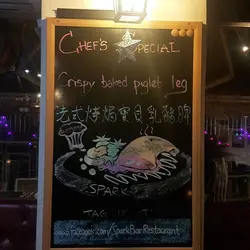 CHEF'S SPECIAL
Crispy baked piglet leg
法式烤焗寶貝乳豬髀
SPARK
www.facebook.com/SparkBarRestaurant